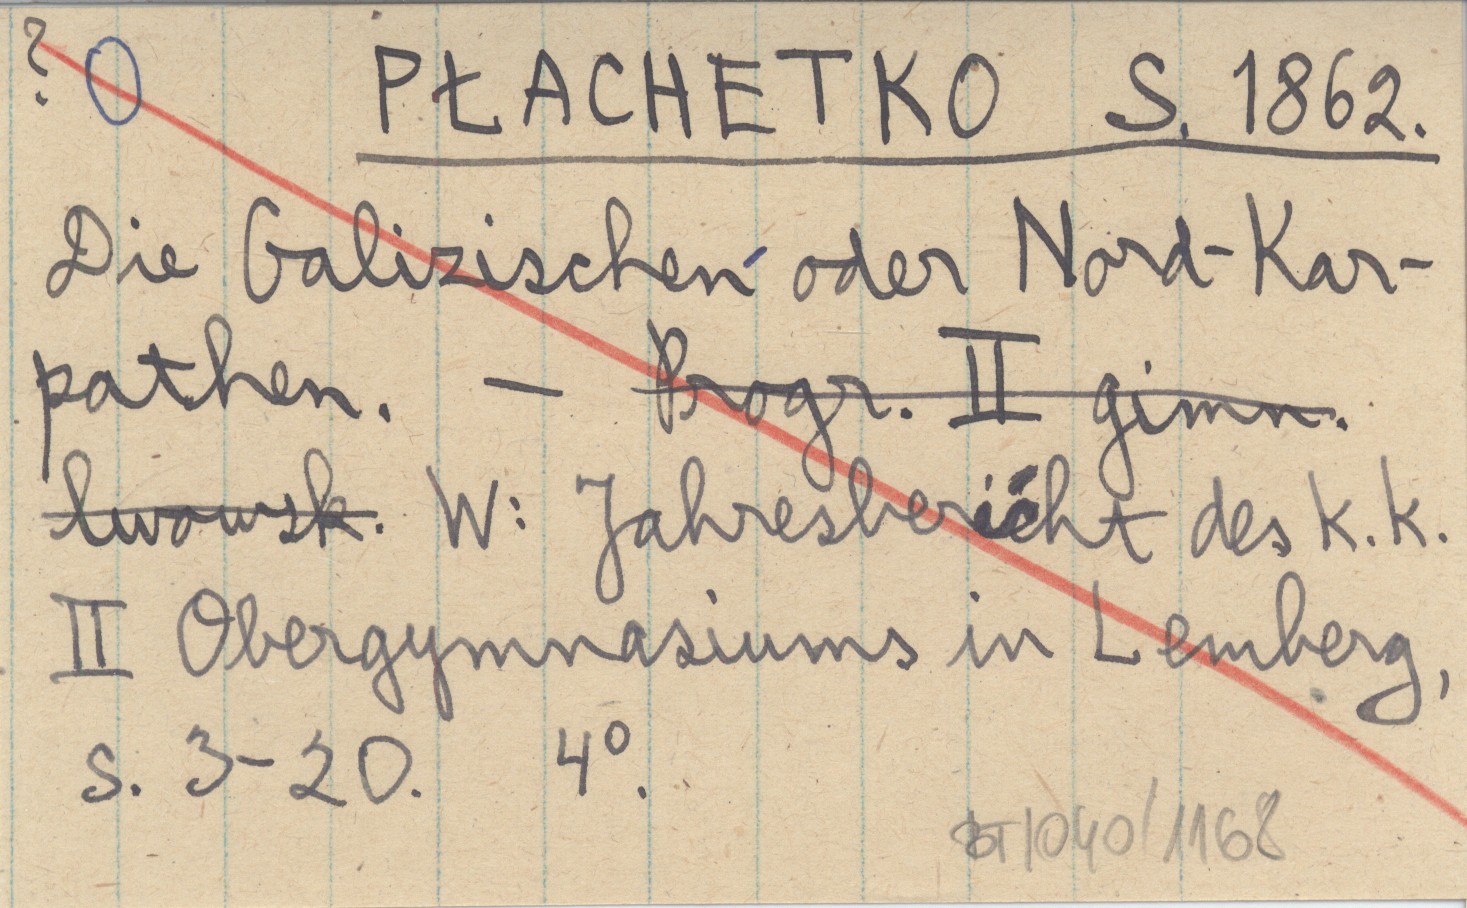 ? O PŁACHETKO S. 1862.
Die Galizischen oder Nord-Kar-
pathen. — Progr. II gimn.
lwowsk. W: Jahresbericht des k.k.
II Obergymnasiums in Lemberg,
s. 3-20. 4º.
1040/1168